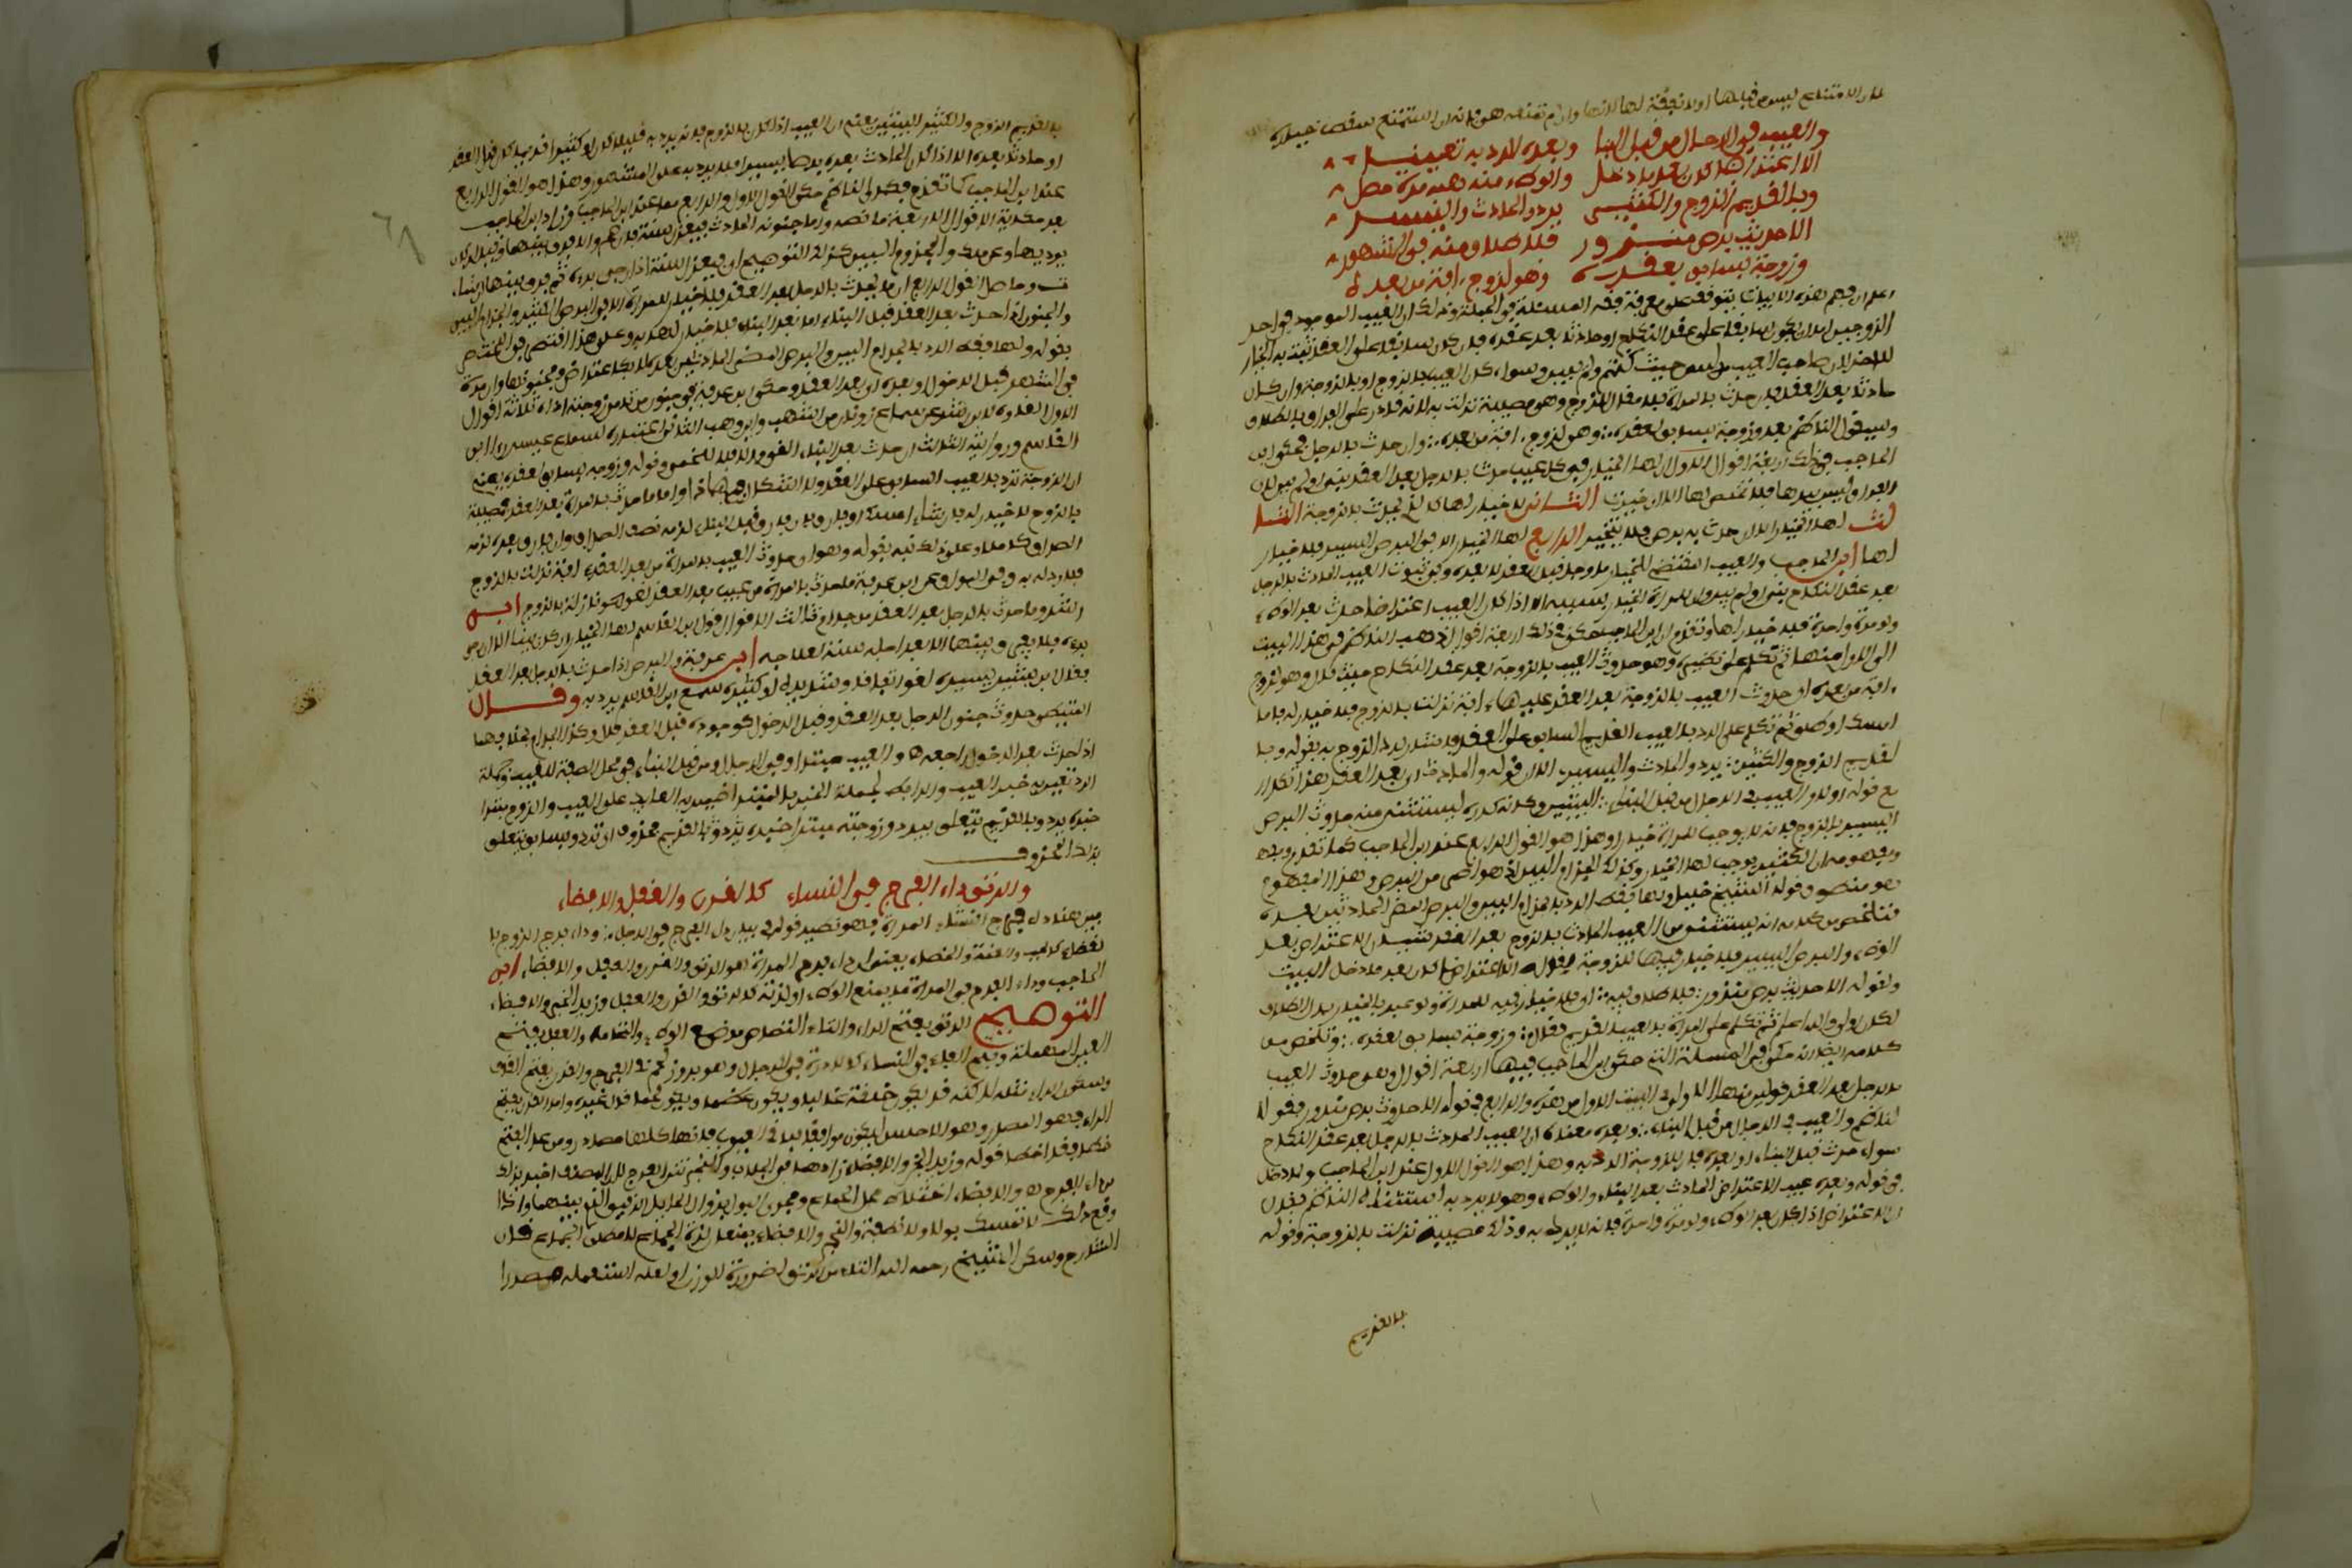 لان الامتناع ليس من قبلها او لا نفقة لها لانها وان لم تمنعه هو فانه ان استمتع سقط خياره
والعيب في الرجال من قبل البنا وبعده الرد به تعينا
الا اعتراضا كان بعد ما دخل والوطء منه هبه مرة حصل
وبالقديم الزوج والكثير يرد والحادث واليسير
الا حديث برص منزور فلا طلاق منه في المشهور
وزوجة بسابق لعقده وهو لزوج آفة من بعده
اعلم ان فهم هذه الابيات يتوقف على معرفة فقه المسئلة في الجملة وذلك ان العيب الموجود في احد
الزوجين اما ان يكون سابقا على عقد النكاح او حادثا بعد عقده فان كان سابقا على العقد ثبت به الخيار
للاخر لان صاحب العيب مدلس حيث كتم ولم يبين وسواء كان العيب بالزوج او بالزوجة وان كان
حادثا بعد العقد فان حدث بالمراة فلا مقال للزوج وهو مصيبة نزلت به لانه قادر على الفراق بالطلاق
وسيقول الناظم بعد وزوجة بسابق لعقده وهو لزوج آفة من بعده وان حدث بالرجل فحكى ابن
الحاجب في ذلك اربعة اقوال الاول لها الخيار في كل عيب حدث بالرجل بعد العقد بنى او لم يبن لان
الفراق ليس بيدها فلا تخلص لها الا ان خيرت الثاني لا خيار لها كالذي يحدث بالزوجة الثا
لث لها الخيار الا ان حدث به برص فلا تخير الرابع لها الخيار الا في البرص اليسير فلا خيار
لها ابن الحاجب والعيب المقتضي للخيار ما وجد قبل العقد لا بعده وفي ثبوت العيب الحادث بالرجل
بعد عقد النكاح بنى او لم يبن وان للمراة الخيار بسببه الا اذا كان العيب اعتراضا حدث بعد الوطء
ولو مرة واحدة فلا خيار لها وتقدم ان ابن الحاجب حكى في ذلك اربعة اقوال ذهب الناظم في هذا البيت
الى الاول منها ثم تكلم على نظيره وهو حدوث العيب بالزوجة بعد عقد النكاح حيث قال وهو لزوج
آفة من بعده اي حدوث العيب بالزوجة بعد العقد عليها آفة نزلت بالزوج فلا خيار له فاما
امسك او طلق ثم تكلم على الرد بالعيب القديم السابق على العقد فاشار لرد الزوج به بقوله وبا
لقديم الزوج والكثير يرد والحادث واليسير الا ان قوله والحادث اي بعد العقد هذا تكرار
مع قوله اولا والعيب في الرجال من قبل البنا البيتين وكانه كرره ليستثني منه حدوث البرص
اليسير بالزوج فانه لا يوجب للمراة خيارا وهذا هو القول الرابع عند ابن الحاجب كما تقدم
ومفهومه ان الكثير يوجب لها الخيار وكذلك الجذام البين اذ هو اضر من البرص وهذا المفهوم
هو منصوص قول الشيخ خليل ولها فقط الرد بالجذام البين والبرص المضر الحادثين بعده
فتلخص من كلامه انه يستثنى من العيب الحادث بالزوج بعد العقد شيئان الاعتراض بعد
الوطء والبرص اليسير فلا خيار فيهما للزوجة لقوله الا اعتراضا كان بعد ما دخل البيت
ولقوله الا حديث برص منزور فلا طلاق فيه اي فلا خيار فيه للمراة ولو عبر بالخيار بدل الطلاق
لكان اولى والله اعلم ثم تكلم على المراة بالعيب القديم فقال وزوجة بسابق لعقده وتلخص من
كلامه ايضا انه حكى في المسئلة التي حكى ابن الحاجب فيها اربعة اقوال وهو حدوث العيب
بالرجل بعد العقد قولين منها الاول في البيت الاول من هذه والرابع في قوله الا حديث برص منزور فقول ا
لناظم والعيب في الرجال من قبل البناء وبعده معناه ان العيب الحادث بالرجل بعد عقد النكاح
سواء حدث قبل البناء او بعده فان للزوجة الرد به وهذا هو القول الاول عند ابن الحاجب ولا دخل
في قوله وبعده عيب الاعتراض الحادث بعد البناء والوطء وهو لا يرد به استثناه الناظم فقال
ان الاعتراض اذا كان بعد الوطء ولو مرة واحدة فانه لا يرد به وذلك مصيبة نزلت بالزوجة وقوله
بالقديم
بالقديم الزوج والكثير البيتين يعني ان العيب اذا كان بالزوج فانه يرد به قليلا كان او كثيرا قديما كان قبل العقد
او حادثا بعده الا اذا كان الحادث بعده برصا يسيرا فلا يرد به على المشهور وهذا هو القول الرابع
عند ابن الحاجب كما تقدم فكان الناظم حكى القول الاول والرابع مما عند ابن الحاجب وزاد ابن الحاجب
بعد حكاية الاقوال الاربعة ما نصه واما جنونه الحادث فيعزل سنة فان صح والا فرق بينهما وقيل ان كان
يوذيها وعن ملك والمجذوم البين كذلك التوضيح اي فيعزل سنة اذا رجي برؤه ثم يفرق بينهما ان شاء
ت وحاصل القول الرابع ان ما يحدث بالرجل بعد العقد فلا خيار للمراة الا في البرص الكثير والجذام البين
والجنون اذا حدث بعد العقد قبل البناء اما بعد البناء فلا خيار لها به وعلى هذا اقتصر في المختصر
بقوله ولها فقط الرد بالجذام البين والبرص المضر الحادثين بعده لا بكاعتراض وبجنونهما وان مرة
في الشهر قبل الدخول وبعده اي بعد العقد وحكى ابن عرفة في جنون من تامن زوجته اذاه ثلاثة اقوال
الاول لغوه لابن رشد عن سماع زونان من اشهب وابن وهب الثاني اعتباره لسماع عيسى رواية ابن
القاسم وروايته الثالث ان حدث بعد البناء الغي والا فلا للخمي وقوله وزوجة بسابق لعقده يعني
ان الزوجة ترد بالعيب السابق على العقد ولا اشكال في هذا واما ما حدث بالمراة بعد العقد فمصيبة
بالزوج لا خيار له فان شاء امسك او فارق فان فارق قبل البناء لزمه نصف الصداق وان فارق بعده لزمه
الصداق كاملا وعلى ذلك نبه بقوله وهو اي حدوث العيب بالمراة من بعد العقد آفة نزلت بالزوج
فلا رد له به وفي المواق عن ابن عرفة ما حدث بالمراة من عيب بعد العقد لغو وهو نازلة بالزوج ابن
رشد وما حدث بالرجل بعد العقد من جذام ثالث الاقوال قول ابن القاسم لها الخيار ان كان بينا الا ان يرجى
برؤه فلا يفرق بينهما الا بعد اجله سنة لعلاجه ابن عرفة والبرص اذا حدث بالرجل بعد العقد
فقال ابن رشد يسيره لغو اتفاقا وشديده او كثيره سمع ابن القاسم يرد به وقال
المتيطي حدوث جنون الرجل بعد العقد وقبل الدخول كوجوده قبل العقد فلا وكذا الجذام بخلافهما
اذا حدث بعد الدخول راجعه ه والعيب مبتدا وفي الرجال ومن قبل البناء في محل الصفة للعيب وجملة
الرد تعين به خبر العيب والرابط لجملة الخبر بالمبتدا ضمير به العايد على العيب والزوج مبتدا
خبره يرد وبالقديم يتعلق بيرد وزوجته مبتدا خبره يرد وبالقديم محذوف اي ترد وبسابق يتعلق
بذلك المحذوف
والرتق داء الفرج في النساء كالقرن والعفل والافضاء
بين هنا داء فرج النساء المراة وهو نظير قوله في بيان داء الفرج في الرجل وداء فرج الزوج با
لقضاء كالجب والعنة والخصاء يعني ان داء فرج المراة هو الرتق والقرن والعفل والافضاء ابن
الحاجب وداء الفرج في المراة ما يمنع الوطء او لذته كالرتق والقرن والعفل وزيد البخر والافضاء
التوضيح الرتق بفتح الراء والتاء التصاق موضع الوطء والتحامه والعفل بفتح
العين المهملة وفتح الفاء في النساء كالادرة في الرجال وهو بروز لحم في الفرج والقرن بفتح القاف
وسكون الراء مثله لاكنه قد يكون خلقة غالبا ويكون عظما ويكون لحما قال غيره واما القرن بفتح
الراء فهو المصدر وهو الاحسن ليكون موافقا لباقي العيوب فانها كلها مصادر ومن عد الفتح
خطا فقد اخطا قوله وزيد البخر والافضاء زادهما في الجلاب وكالبخر نتن الفرج لان المصنف اخبر بذلك
من داء الفرج ه والافضاء اختلاط محل الجماع ومجرى البول بزوال الحايل الرقيق الذي بينهما واذا
وقع ذلك لا تمسك بولا ولا نطفة والبخر والافضاء يمنعان لذة الجماع لا اصل الجماع قال
الشارح وسكن الشيخ رحمه الله التاء من الرتق لضرورة الوزن او لعله استعمله مصدرا